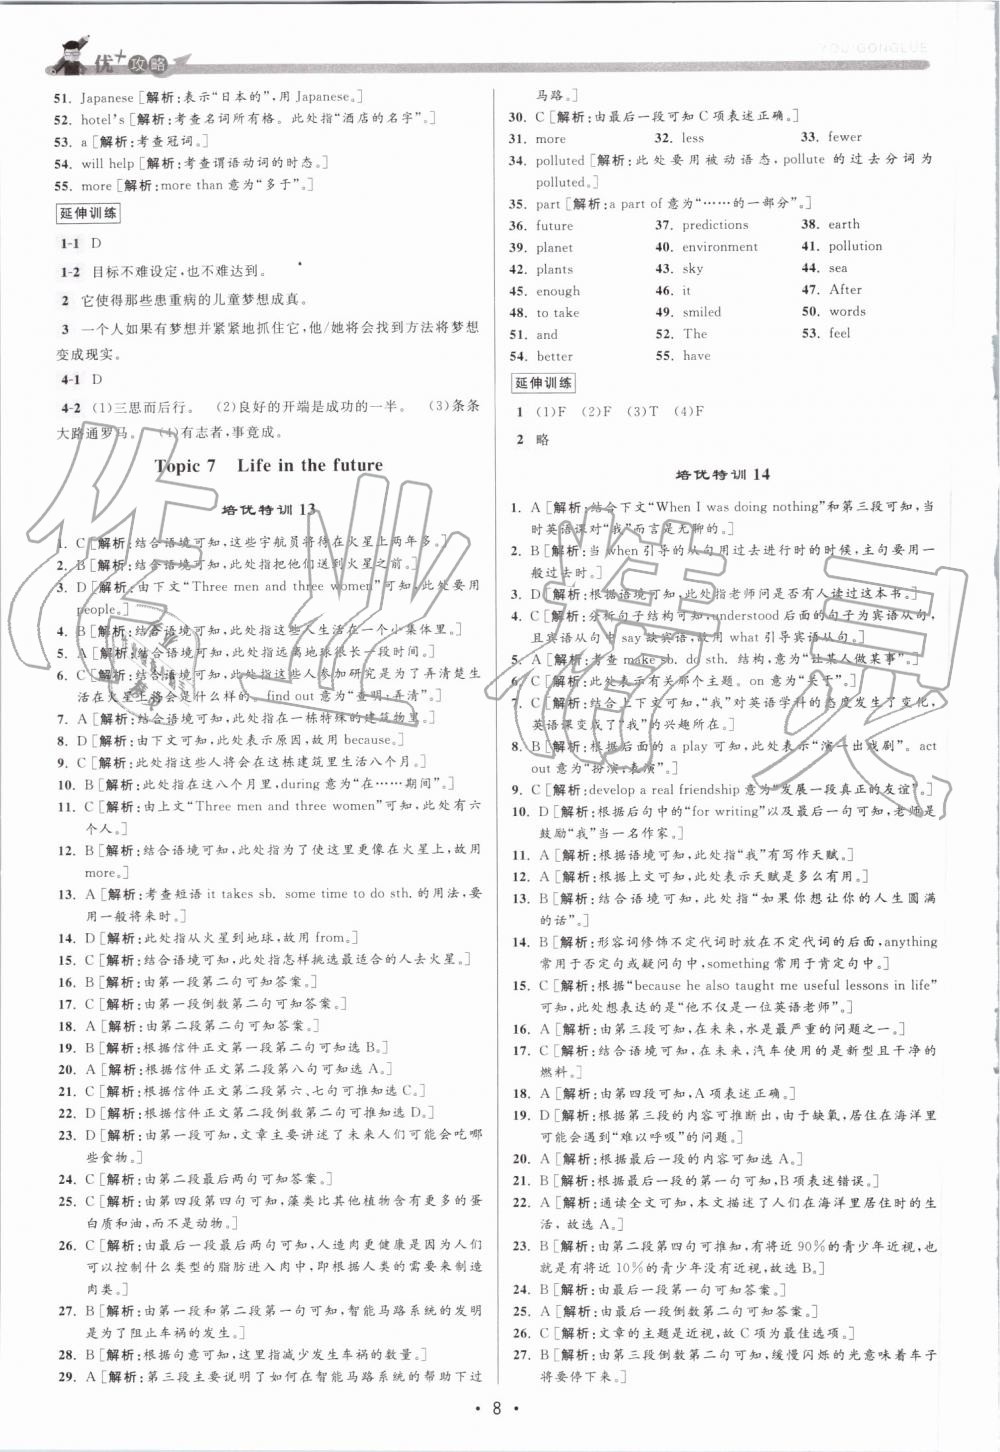 优+攻略
YOU GONGLUE
51. Japanese [解析:表示“日本的”,用 Japanese。]
52. hotel's [解析:考查名词所有格。此处指“酒店的名字”。]
53. a [解析:考查冠词。]
54. will help [解析:考查谓语动词的时态。]
55. more [解析:more than 意为“多于”。]
延伸训练
1-1 D
1-2 目标不难设定,也不难达到。
2 它使得那些患重病的儿童梦想成真。
3 一个人如果有梦想并紧紧地抓住它,他/她将会找到方法将梦想
变成现实。
4-1 D
4-2 (1)三思而后行。 (2)良好的开端是成功的一半。 (3)条条
大路通罗马。 (4)有志者,事竟成。
Topic 7 Life in the future
培优特训 13
1. C [解析:结合语境可知,这些宇航员将待在火星上两年多。]
2. B [解析:结合语境可知,此处指把他们送到火星之前。]
3. D [解析:由下文“Three men and three women”可知,此处要用
people。]
4. B [解析:结合语境可知,此处指这些人生活在一个小集体里。]
5. A [解析:结合语境可知,此处指远离地球很长一段时间。]
6. C [解析:结合语境可知,此处指这些人参加研究是为了弄清楚生
活在火星上将会是什么样的。find out 意为“查明;弄清”。]
7. A [解析:结合语境可知,此处指在一栋特殊的建筑物里。]
8. D [解析:由下文可知,此处表示原因,故用 because。]
9. C [解析:此处指这些人将会在这栋建筑里生活八个月。]
10. B [解析:此处指在这八个月里,during 意为“在……期间”。]
11. C [解析:由上文“Three men and three women”可知,此处有六
个人。]
12. B [解析:结合语境可知,此处指为了使这里更像在火星上,故用
more。]
13. A [解析:考查短语 it takes sb. some time to do sth. 的用法,要
用一般将来时。]
14. D [解析:此处指从火星到地球,故用 from。]
15. C [解析:结合语境可知,此处指怎样挑选最适合的人去火星。]
16. B [解析:由第一段第二句可知答案。]
17. C [解析:由第一段倒数第二句可知答案。]
18. A [解析:由第二段第二句可知答案。]
19. B [解析:根据信件正文第一段第二句可知选 B。]
20. A [解析:根据信件正文第二段第八句可知选 A。]
21. C [解析:根据信件正文第二段第六、七句可推知选 C。]
22. D [解析:根据信件正文第二段倒数第二句可知选 D。]
23. D [解析:由第一段可知,文章主要讲述了未来人们可能会吃哪
些食物。]
24. C [解析:由第二段最后两句可知答案。]
25. C [解析:由第四段第四句可知,藻类比其他植物含有更多的蛋
白质和油,而不是动物。]
26. C [解析:由最后一段最后两句可知,人造肉更健康是因为人们
可以控制什么类型的脂肪进入肉中,即根据人类的需要来制造
肉类。]
27. B [解析:由第一段和第二段第一句可知,智能马路系统的发明
是为了阻止车祸的发生。]
28. B [解析:根据句意可知,这里指减少发生车祸的数量。]
29. A [解析:第三段主要说明了如何在智能马路系统的帮助下过
马路。]
30. C [解析:由最后一段可知 C 项表述正确。]
31. more 32. less 33. fewer
34. polluted [解析:此处要用被动语态,pollute 的过去分词为
polluted。]
35. part [解析:a part of 意为“……的一部分”。]
36. future 37. predictions 38. earth
39. planet 40. environment 41. pollution
42. plants 43. sky 44. sea
45. enough 46. it 47. After
48. to take 49. smiled 50. words
51. and 52. The 53. feel
54. better 55. have
延伸训练
1 (1)F (2)F (3)T (4)F
2 略
培优特训 14
1. A [解析:结合下文“When I was doing nothing”和第三段可知,当
时英语课对“我”而言是无聊的。]
2. B [解析:当 when 引导的从句用过去进行时的时候,主句要用一
般过去时。]
3. D [解析:根据语境可知,此处指老师问是否有人读过这本书。]
4. C [解析:分析句子结构可知,understood 后面的句子为宾语从句,
且宾语从句中 say 缺宾语,故用 what 引导宾语从句。]
5. A [解析:考查 make sb. do sth. 结构,意为“让某人做某事”。]
6. C [解析:此处表示有关那个主题。on 意为“关于”。]
7. C [解析:结合上下文可知,“我”对英语学科的态度发生了变化,
英语课变成了“我”的兴趣所在。]
8. B [解析:根据后面的 a play 可知,此处表示“演一出戏剧”。act
out 意为“扮演;表演”。]
9. C [解析:develop a real friendship 意为“发展一段真正的友谊”。]
10. D [解析:根据后句中的“for writing”以及最后一句可知,老师是
鼓励“我”当一名作家。]
11. A [解析:根据语境可知,此处指“我”有写作天赋。]
12. A [解析:根据上文可知,此处表示天赋是多么有用。]
13. B [解析:结合语境可知,此处指“如果你想让你的人生圆满
的话”。]
14. B [解析:形容词修饰不定代词时放在不定代词的后面,anything
常用于否定句或疑问句中,something 常用于肯定句中。]
15. C [解析:根据“because he also taught me useful lessons in life”
可知,此处想表达的是“他不仅是一位英语老师”。]
16. A [解析:由第三段可知,在未来,水是最严重的问题之一。]
17. C [解析:结合语境可知,在未来,汽车使用的是新型且干净的
燃料。]
18. A [解析:由第四段可知,A 项表述正确。]
19. D [解析:根据第三段的内容可推断出,由于缺氧,居住在海洋里
可能会遇到“难以呼吸”的问题。]
20. A [解析:根据最后一段的内容可知选 A。]
21. B [解析:根据最后一段的第一句可知,B 项表述错误。]
22. A [解析:通读全文可知,本文描述了人们在海洋里居住时的生
活,故选 A。]
23. B [解析:由第二段第四句可推知,有将近 90%的青少年近视,也
就是有将近 10%的青少年没有近视。故选 B。]
24. B [解析:由最后一段第一句可知答案。]
25. A [解析:由最后一段倒数第二句可知答案。]
26. C [解析:文章的主题是近视,故 C 项为最佳选项。]
27. B [解析:由第三段倒数第二句可知,缓慢闪烁的光意味着车子
将要停下来。]
· 8 ·
作业精灵